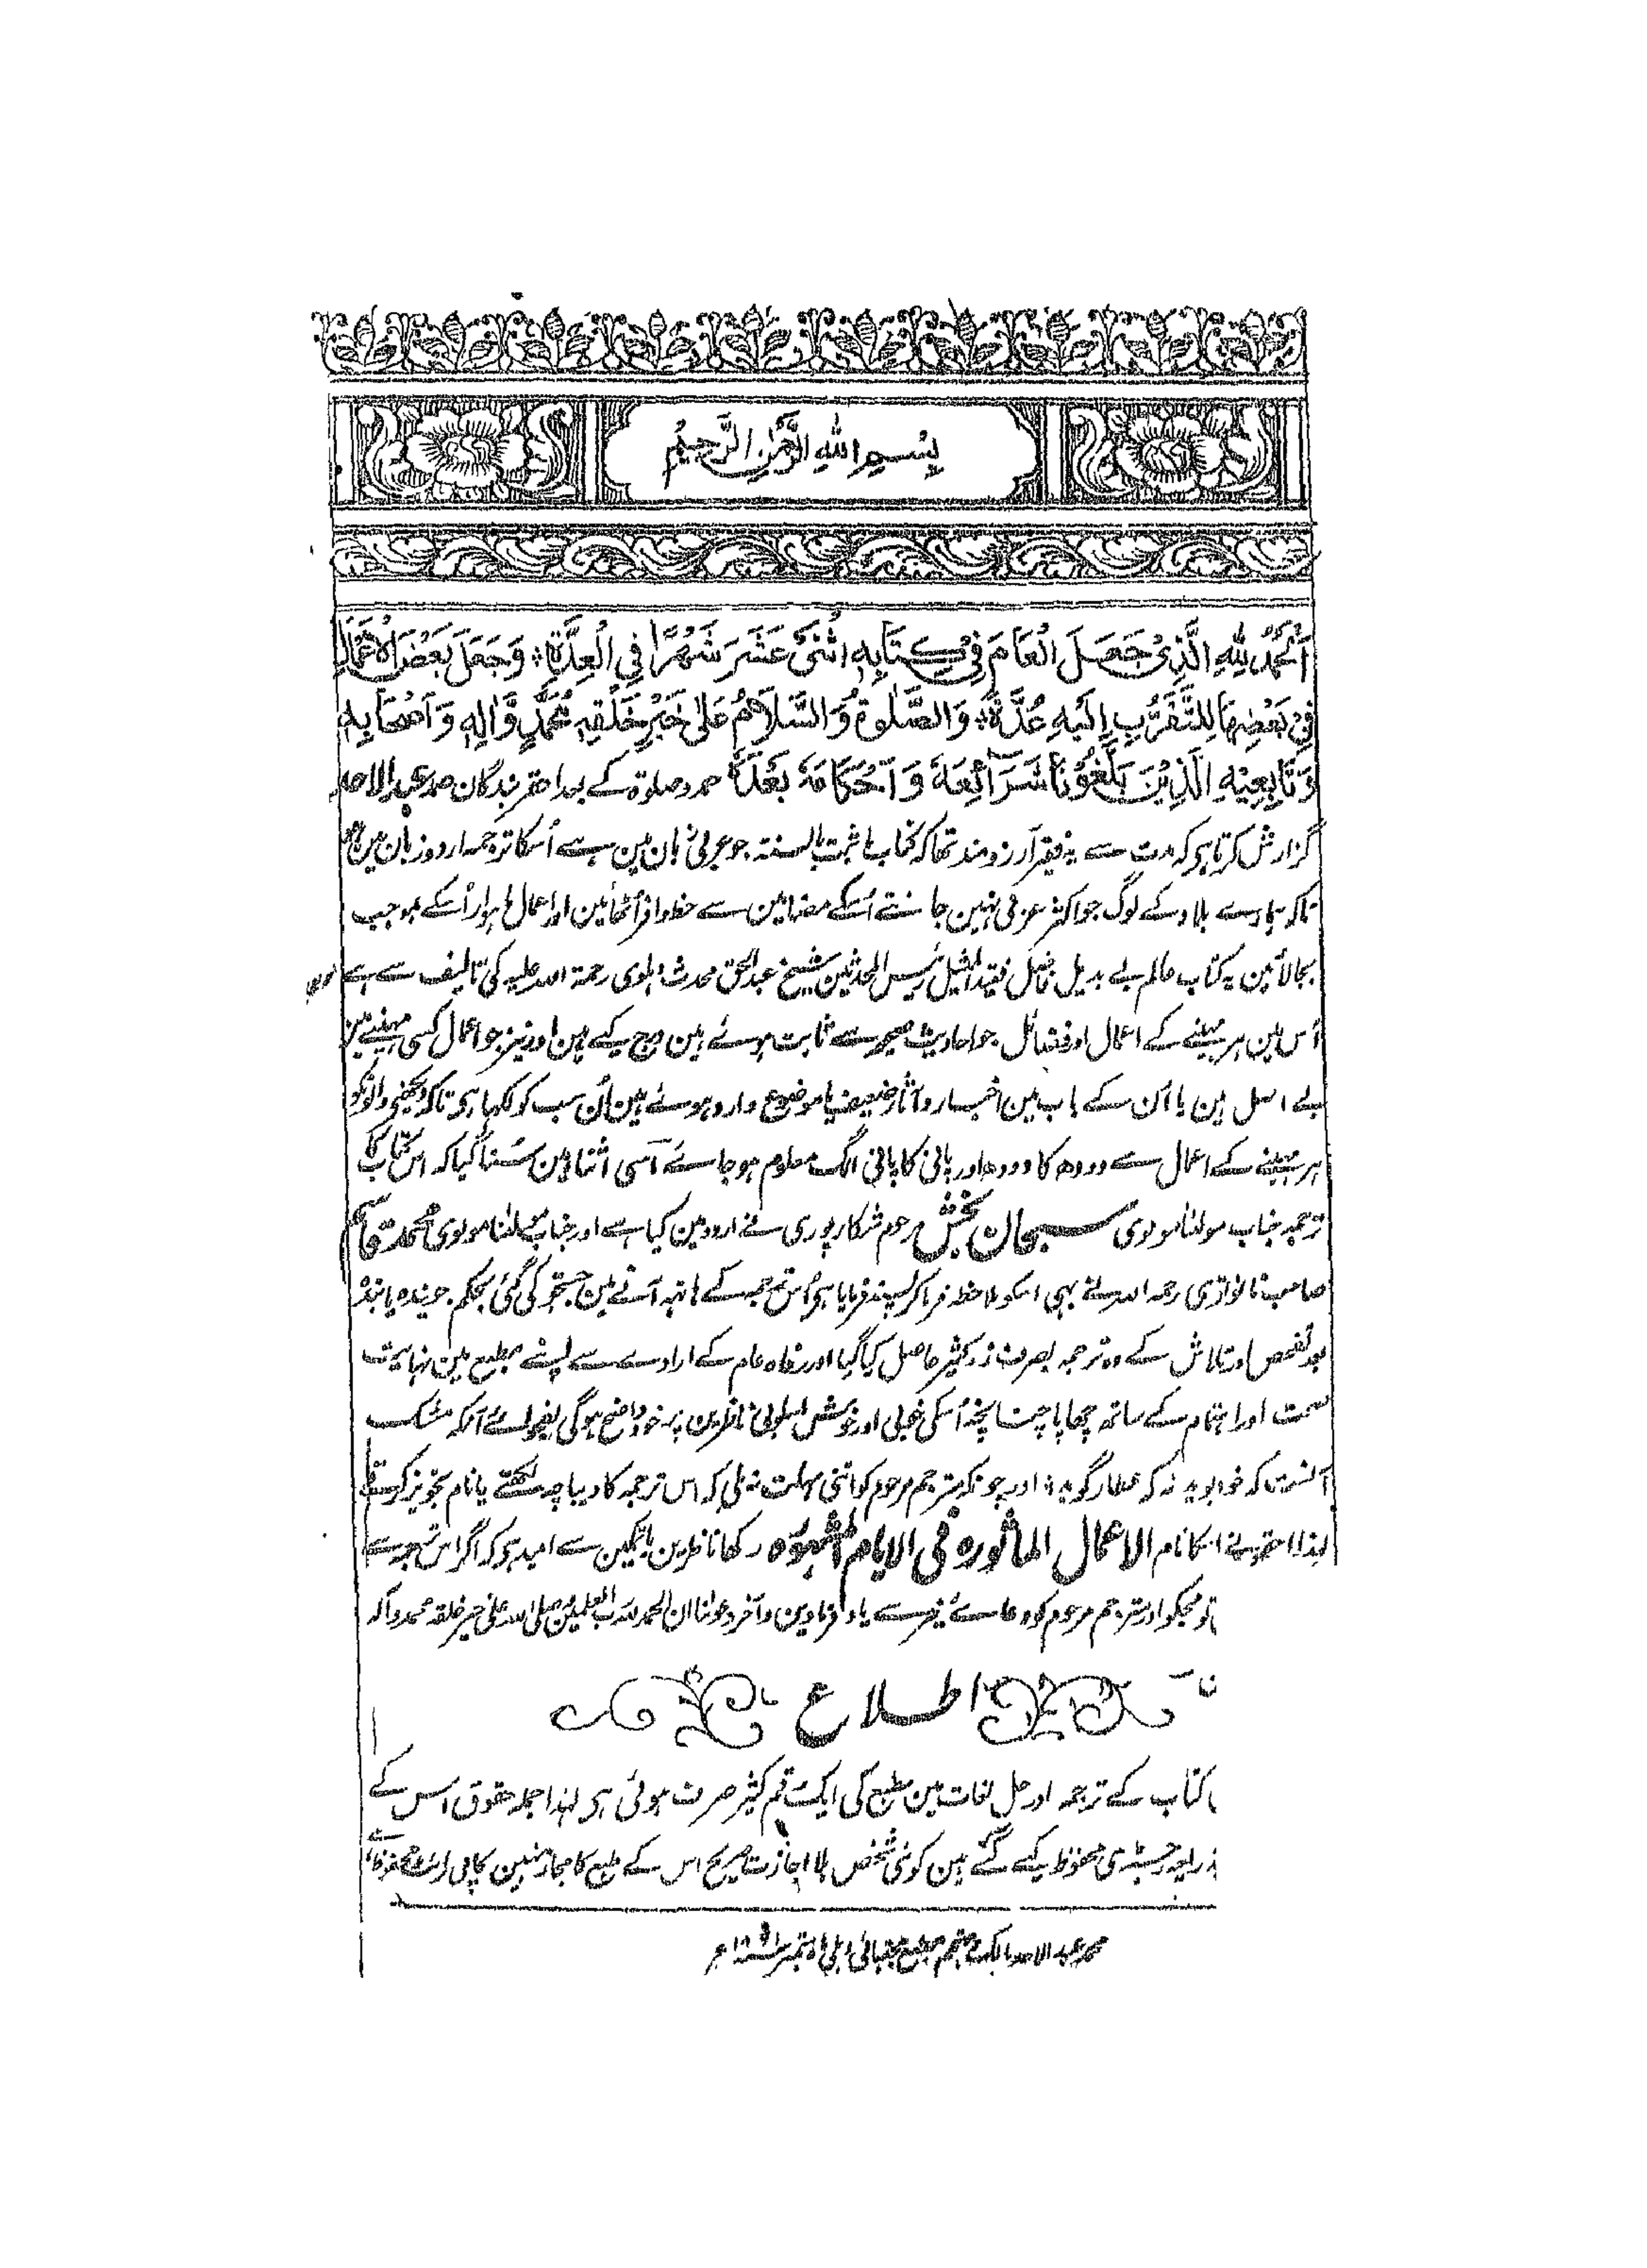 بِسْمِ اللهِ الرَّحْمٰنِ الرَّحِيْمِ
اَلْحَمْدُ لِلّٰهِ الَّذِىْ جَعَلَ الْعَامَ فِىْ كِتَابِهٖ اثْنَىْ عَشَرَ شَهْرًا فِى الْعِدَّةِ؞ وَجَعَلَ بَعْضَ الْاَعْمَالِ
فِىْ بَعْضِهَا لِلتَّقَرُّبِ اِلَيْهِ عُدَّةً؞ وَالصَّلٰوةُ وَالسَّلَامُ عَلٰى خَيْرِ خَلْقِهٖ مُحَمَّدٍ وَّاٰلِهٖ وَاَصْحَابِهٖ
وَتَابِعِيْهِ الَّذِيْنَ بَلَّغُوْنَا شَرَآئِعَهٗ وَاَحْكَامَهٗ بَعْدَهٗ حمد وصلوۃ کے بعد احقر بندگان محمد عبد الاحد
گزارش کرتا ہی کہ مدت سے یہ فقیر آرزومند تھا کہ کتاب ما ثبت بالسنتہ جو عربی زبان مین ہے اُسکا ترجمہ اردو زبان مین ہو
تاکہ ہمارے بلاد کے لوگ جو اکثر عربی نہین جانتے اُسکے مضامین سے حظ وافر اُٹھائین اور اعمال ماہوار اُسکے بموجب
بجالائین یہ کتاب عالم بے بدیل فاضل فقید المثیل رئیس المحدثین شیخ عبد الحق محدث دہلوی رحمۃ اللہ علیہ کی تالیف سے ہے
اُس مین ہر مہینے کے اعمال اور فضائل جو احادیث صحیحہ سے ثابت ہوئے ہین درج کیے ہین اور نیز جو اعمال کسی مہینے مین
بے اصل ہین یا اُن کے باب مین اخبار و آثار ضعیف یا موضوع وارد ہوئے ہین اُن سب کو لکھا ہی تاکہ دیکھنے والونکو
ہر مہینے کے اعمال سے دودھ کا دودھ اور پانی کا پانی الگ معلوم ہو جائے اسی اثنا مین سُنا گیا کہ اس کتاب کا
ترجمہ جناب مولٰنا مولوی سبحان بخش مرحوم شکارپوری نے اردو مین کیا ہے اور جناب مولٰنا مولوی محمد قاسم
صاحب نانوتوی رحمہ اللہ نے بہی اسکو ملاحظہ فرما کر پسند فرمایا ہی اُس ترجمہ کے ہاتہہ آنے مین جستجو کی گئی بحکم جویندہ یابندہ
بعد تفحص اور تلاش کے وہ ترجمہ بصرف زر کثیر حاصل کیا گیا اور رفاہ عام کے ارادے سے اپنے مطبع مین نہایت
صحت اور اہتمام کے ساتھ چھاپا چنانچہ اُسکی خوبی اور خوش اسلوبی ناظرین پر خود واضح ہوگی بفحوائے آنکہ مشک
آنست کہ خود ببوید نہ کہ عطار گوید؞ اور چونکہ مترجم مرحوم کو اتنی مہلت نہ ملی کہ اس ترجمہ کا دیباچہ لکھتے یا نام تجویز کرتے
لہذا احقر نے اسکا نام الاعمال الماثورہ فی الایام المشہورہ رکھا ناظرین باتمکین سے امید ہی کہ اگر اس ترجمہ سے
تو مجکو اور مترجم مرحوم کو دعائے خیر سے یاد فرمادین و آخر دعوٰنا ان الحمد للہ رب العٰلمین وصلی اللہ علی خیر خلقہ محمد وآلہ
اطلاع
کتاب کے ترجمہ اور حل لغات مین مطبع کی ایک رقم کثیر صرف ہوئی ہی لہذا جملہ حقوق اس کے
ذریعہ رجسٹری محفوظ کیے گئے ہین کوئی شخص بلا اجازت صریح اس کے طبع کا مجاز نہین کاپی رائٹ
محمد عبد الاحد مالک و مہتمم مطبع مجتبائی دہلی